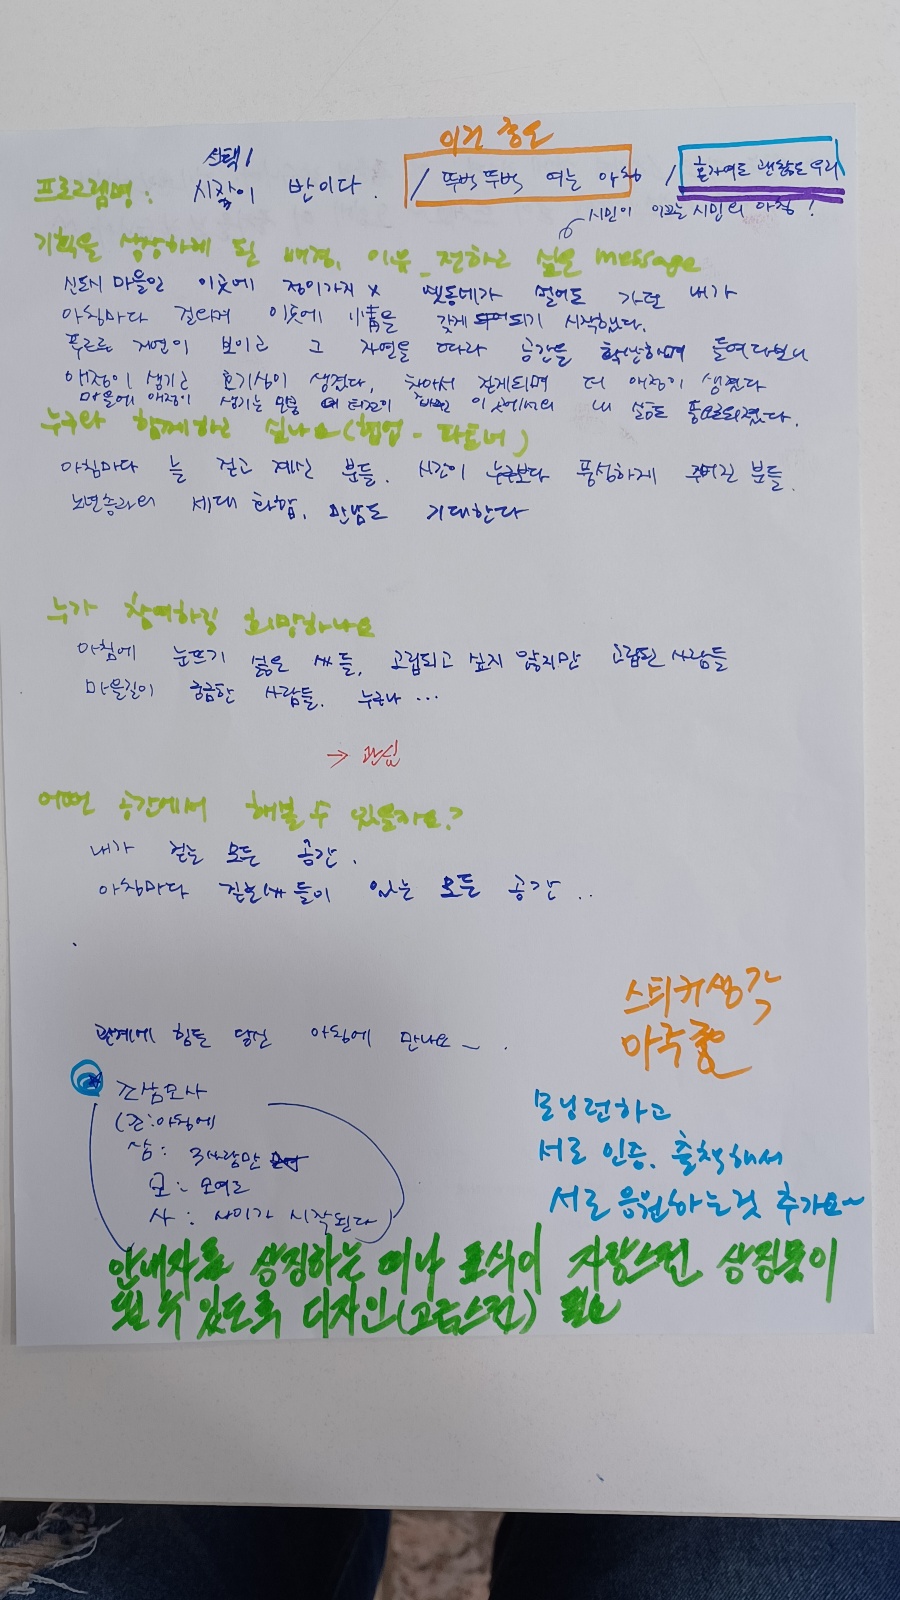 이건 중요
선택1
프로그램명: 시작이 반이다. / 뚜벅뚜벅 여는 아침 / 혼자여도 괜찮은 우리
시민이 이끄는 시민의 아침!
기획을 생각하게 된 배경, 이유_전하고 싶은 message
신도시 마을인 이곳에 정이가지 x 옛동네가 멀어도 가던 내가
아침마다 걸으며 이곳에 小情을 갖게 되기 시작했다.
푸르른 자연이 보이고 그 자연을 따라 공간을 확산하며 들여다보니
애정이 생기고 호기심이 생겼다. 찾아서 걷게되며 더 애정이 생겼다
마을에 애정이 생기는 이곳에서의 내 삶도 풍요로워졌다.
누구와 함께하고 싶나요(협업-파트너)
아침마다 늘 걷고 계신 분들. 시간이 누구보다 풍성하게 주어진 분들.
노년층과의 세대 화합, 만남도 기대한다
누가 참여하길 희망하나요
아침에 눈뜨기 싫은 분들, 고립되고 싶지 않지만 고립된 사람들
마을길이 궁금한 사람들. 누구나 ...
→ 관심
어떤 공간에서 해볼 수 있을까요?
내가 걷는 모든 공간.
아침마다 걷는 들이 있는 모든 공간..
관계에 힘든 당신 아침에 만나요~.
조삼모사
(조: 아침에
삼: 3사람만
모: 모여도
사: 사이가 시작된다)
스티커생각
아주좋
모닝런하고
서로 인증. 출첵해서
서로 응원하는것 추가요~
안내자를 상징하는 띠나 표식이 자랑스런 상징물이
될 수 있도록 디자인(고급스런) 필요